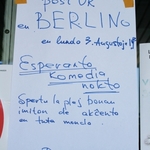 post UK
en BERLINO
en lundo 3. Aŭgusto je 19
Esperanto
Komedia
nokto
Spertu la plej bonan
imiton de akĉento
en tuta mondo.